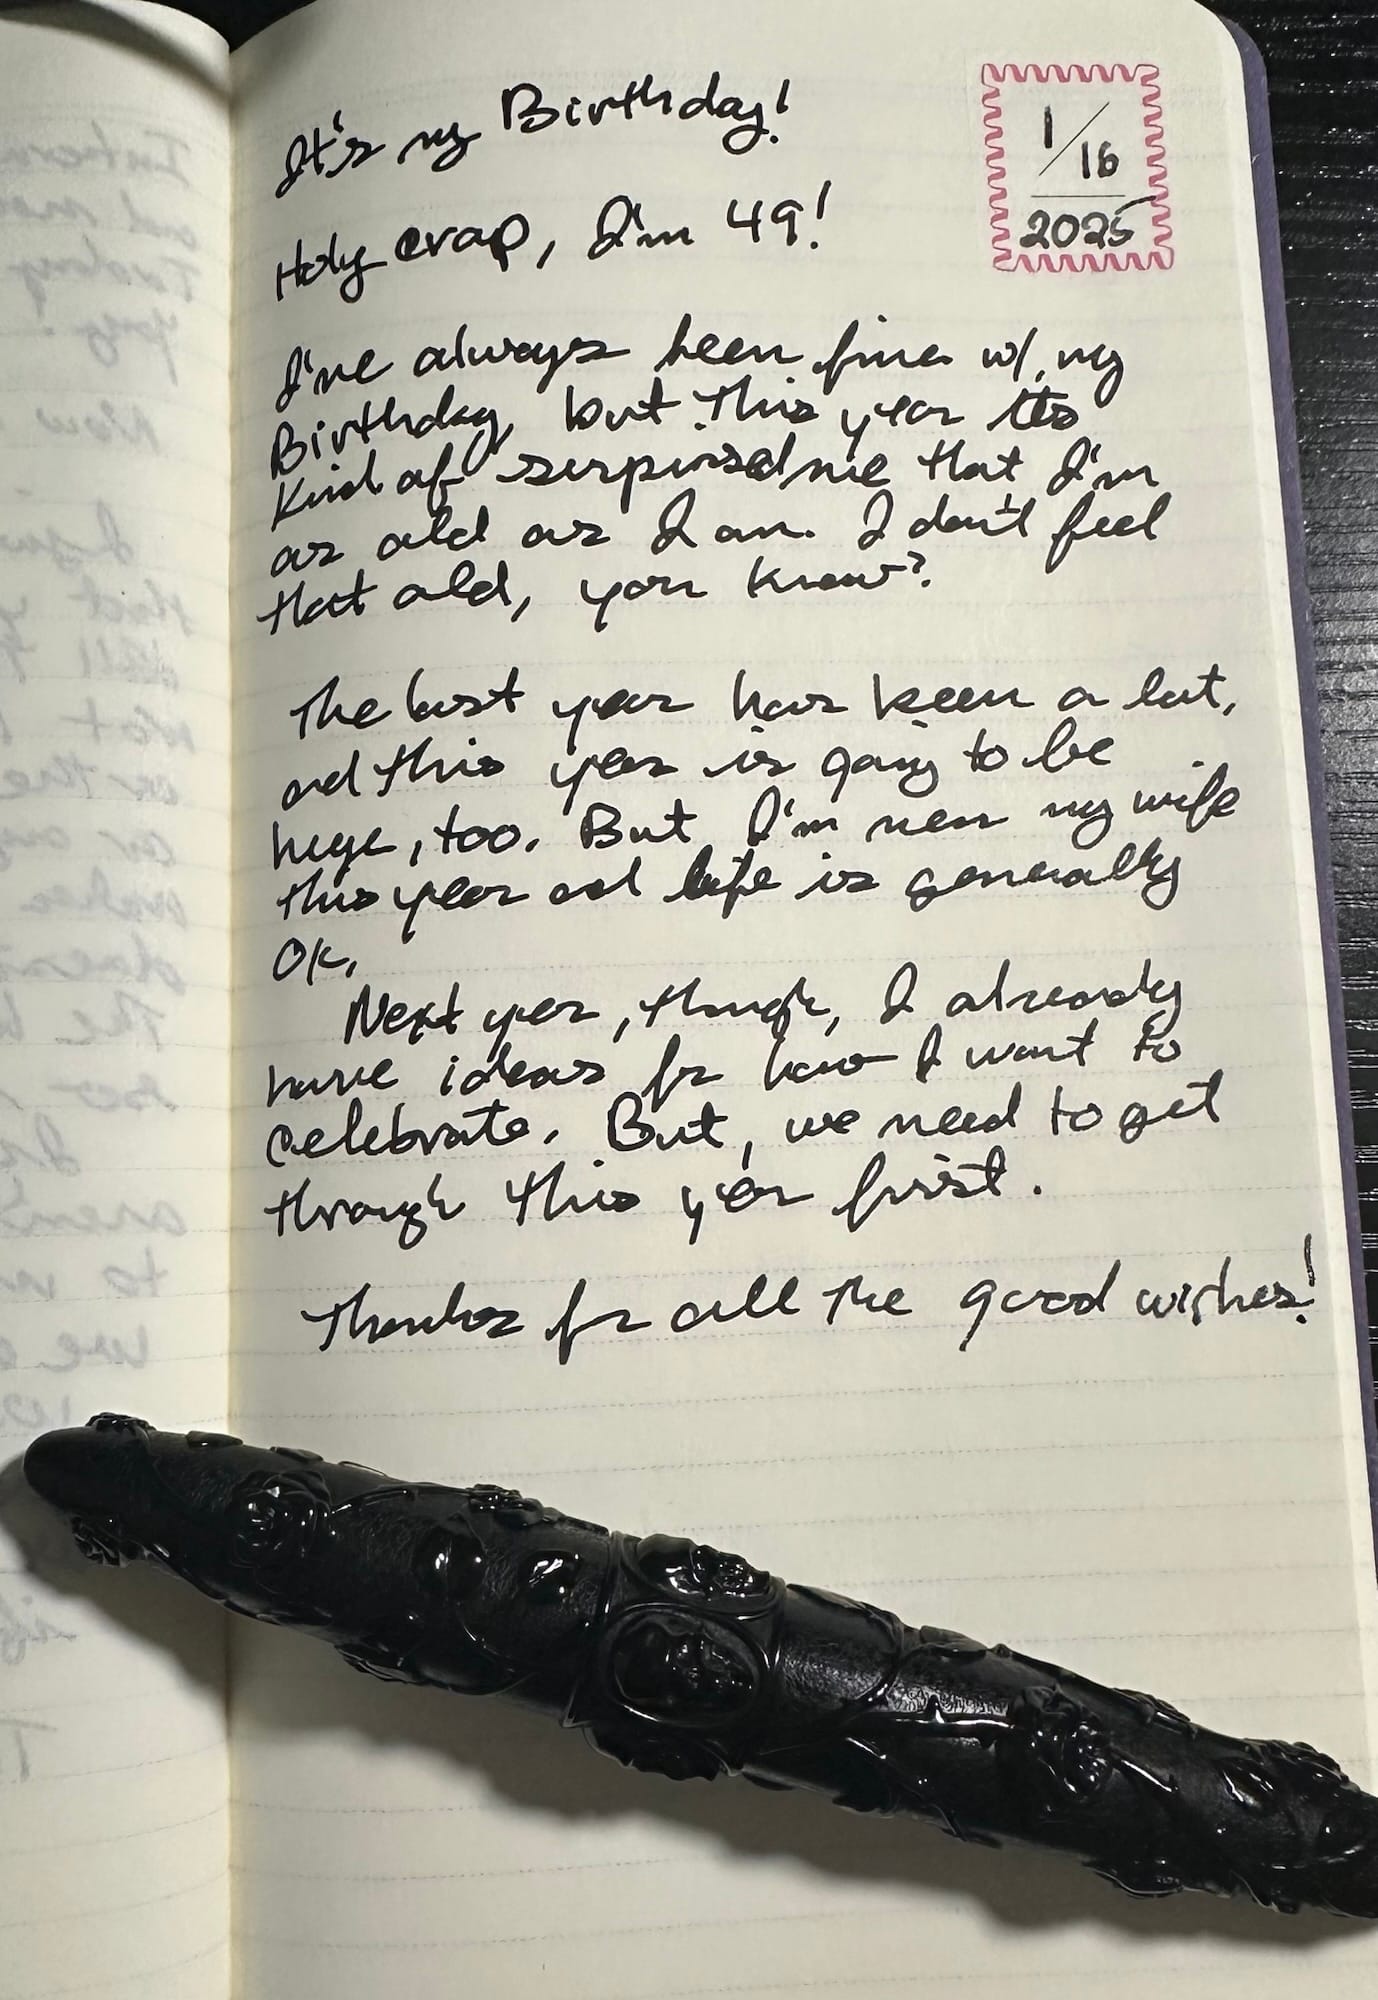 1/16
2025
It's my Birthday!
Holy crap, I'm 49!
I've always been fine w/ my
Birthday, but this year its
kind of surpirsed me that I'm
as old as I am. I don't feel
that old, you know?
The last year has been a lot,
and this year is going to be
huge, too. But I'm near my wife
this year and life is generally
OK.
Next year, though, I already
have ideas for how I want to
celebrate. But, we need to get
through this year first.
Thanks for all the good wishes!